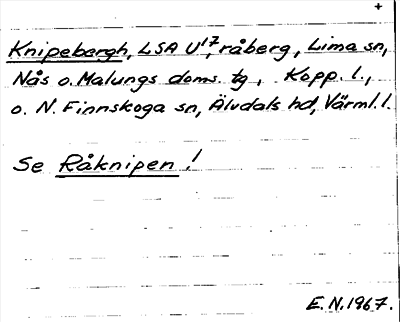 +
Knipebergh, LSA U¹⁷, råberg, Lima sn,
Nås o. Malungs doms. tg, Kopp. l.,
o. N. Finnskoga sn, Älvdals hd, Värml. l.
Se Råknipen!
E. N. 1967.